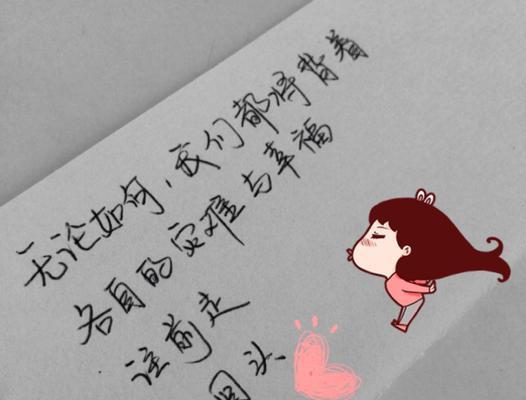 无论如何,我们都将背着
各自的灾难与幸福
往前走
回头